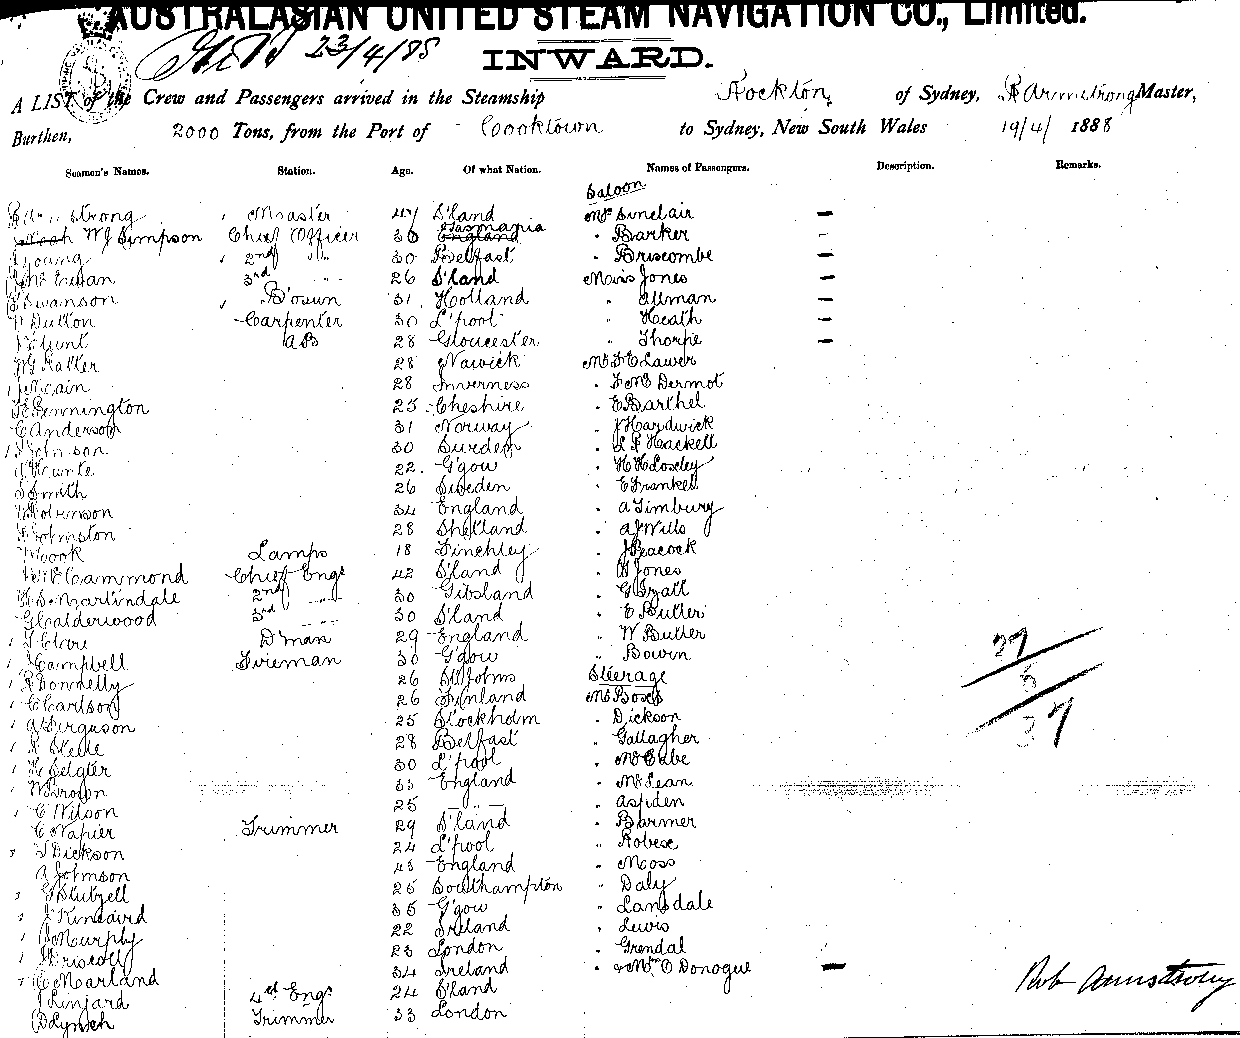 AUSTRALASIAN UNITED STEAM NAVIGATION CO., Limited.
23/4/88
INWARD.
A LIST of the Crew and Passengers arrived in the Steamship Rockton of Sydney, R Armstrong Master,
Burthen, 2000 Tons, from the Port of Cooktown to Sydney, New South Wales 19/4/ 1888
Seamen's Names. Station. Age. Of what Nation. Names of Passengers. Description. Remarks.
Saloon
strong Master 47 S'land Mr Sinclair —
W J Simpson Chief Officer 36 England Tasmania " Barker -
Young 2nd " 30 Belfast " Briscombe —
26 S'land Miss Jones —
Swanson B'osun 31 Holland " Allman —
Dutton Carpenter 30 L'pool " Heath —
Hunt AB 28 Gloucester " Thorpe —
28 Nawick Mr F E Lawer
Cain 28 Inverness " F McDermot
Pennington 25 Cheshire " E Barthel
C Anderson 31 Norway " J Hardwick
Johnson 30 Sweden " Hackell
22 G'gow " H H Loseley
S Smith 26 Sweden " E Frankell
Robinson 34 England " A Timbury
Johnston 28 Shetland " A J Wills
Cook Lamps 18 Finchley " J Peacock
Cammond Chief Engr 42 S'land " Jones
Martindale 2nd " 30 Gibsland " G Pyatt
G Calderwood 3rd " 30 S'land " E Butler
T Clare D'man 29 England " W Butler
J Campbell Fireman 30 G'gow " Bowen
R Donnelly 26 St Johns Steerage
C Carlson 26 Finland Mr Boses
A Ferguson 25 Stockholm " Dickson
Steele 28 Belfast " Gallagher
H Selgter 30 L'pool " McCabe
W Brown 33 England " McLean
C Wilson 25 — " — " Aspden
C Napier Trimmer 29 S'land " Barmer
Dickson 24 L'pool " Robese
A Johnson 43 England " Moss
G Stutzell 25 Southampton " Daly
J Kincaird 35 G'gow " Lansdale
Murphy 22 Ireland " Lewis
Driscoll 23 London " Grendal
C Marland 34 Ireland " & Mrs O'Donogue —
J Linjard 4th Engr 24 S'land
D Lynch Trimmer 33 London
37
Rob Armstrong